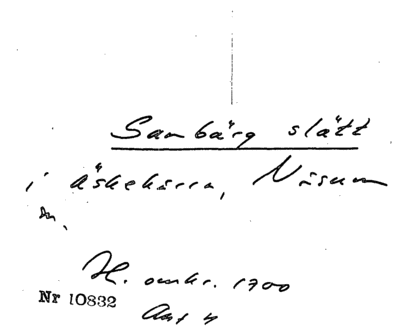 Sambärg slätt
i äskekärra, Näsum
sn.
H. omkr. 1700
Nr 10832
Ant 4